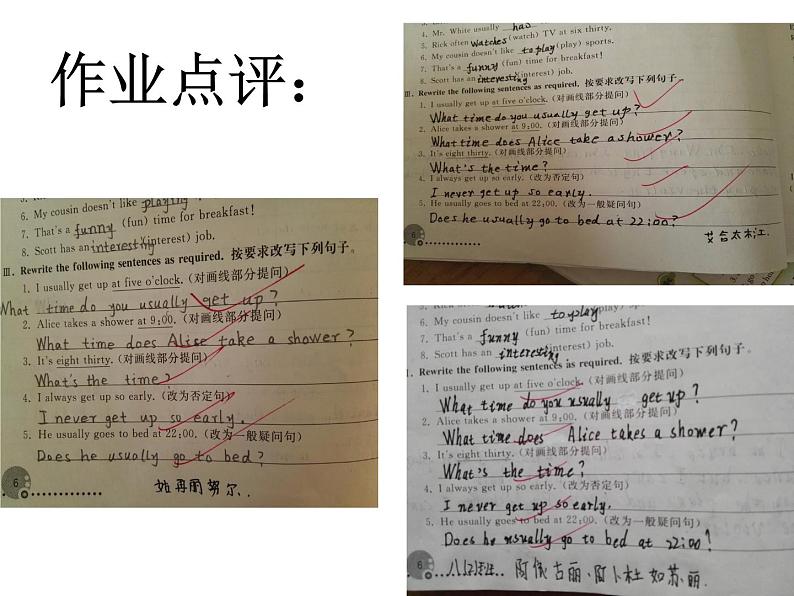 作业点评：
6. My cousin doesn't like playing
7. That's a funny (fun) time for breakfast!
8. Scott has an interesting (interest) job.
Ⅲ. Rewrite the following sentences as required. 按要求改写下列句子。
1. I usually get up at five o'clock. (对画线部分提问)
What time do you usually get up?
2. Alice takes a shower at 9:00. (对画线部分提问)
What time does Alise take a shower?
3. It's eight thirty. (对画线部分提问)
What's the time?
4. I always get up so early. (改为否定句)
I never get up so early.
5. He usually goes to bed at 22:00. (改为一般疑问句)
Does he usually go to bed?
6
4. Mr. White usually has
5. Rick often watches (watch) TV at six thirty.
6. My cousin doesn't like to play (play) sports.
7. That's a funny (fun) time for breakfast!
8. Scott has an interesting (interest) job.
Ⅲ. Rewrite the following sentences as required. 按要求改写下列句子
1. I usually get up at five o'clock. (对画线部分提问)
What time do you usually get up?
2. Alice takes a shower at 9:00. (对画线部分提问)
What time does Alice take a shower?
3. It's eight thirty. (对画线部分提问)
What's the time?
4. I always get up so early. (改为否定句)
I never get up so early.
5. He usually goes to bed at 22:00. (改为一般疑问句)
Does he usually go to bed at 22:00?
6
艾合太木江.
6. My cousin doesn't like to play (play) sports.
7. That's a funny (fun) time for breakfast!
8. Scott has an interesting (interest) job.
I. Rewrite the following sentences as required. 按要求改写下列句子。
1. I usually get up at five o'clock. (对画线部分提问)
What time do you usually get up?
2. Alice takes a shower at 9:00. (对画线部分提问)
What time does Alice takes a shower?
3. It's eight thirty. (对画线部分提问)
What's the time?
4. I always get up so early. (改为否定句)
I never get up so early.
5. He usually goes to bed at 22:00. (改为一般疑问句)
Does he usually go to bed at 22:00?
6